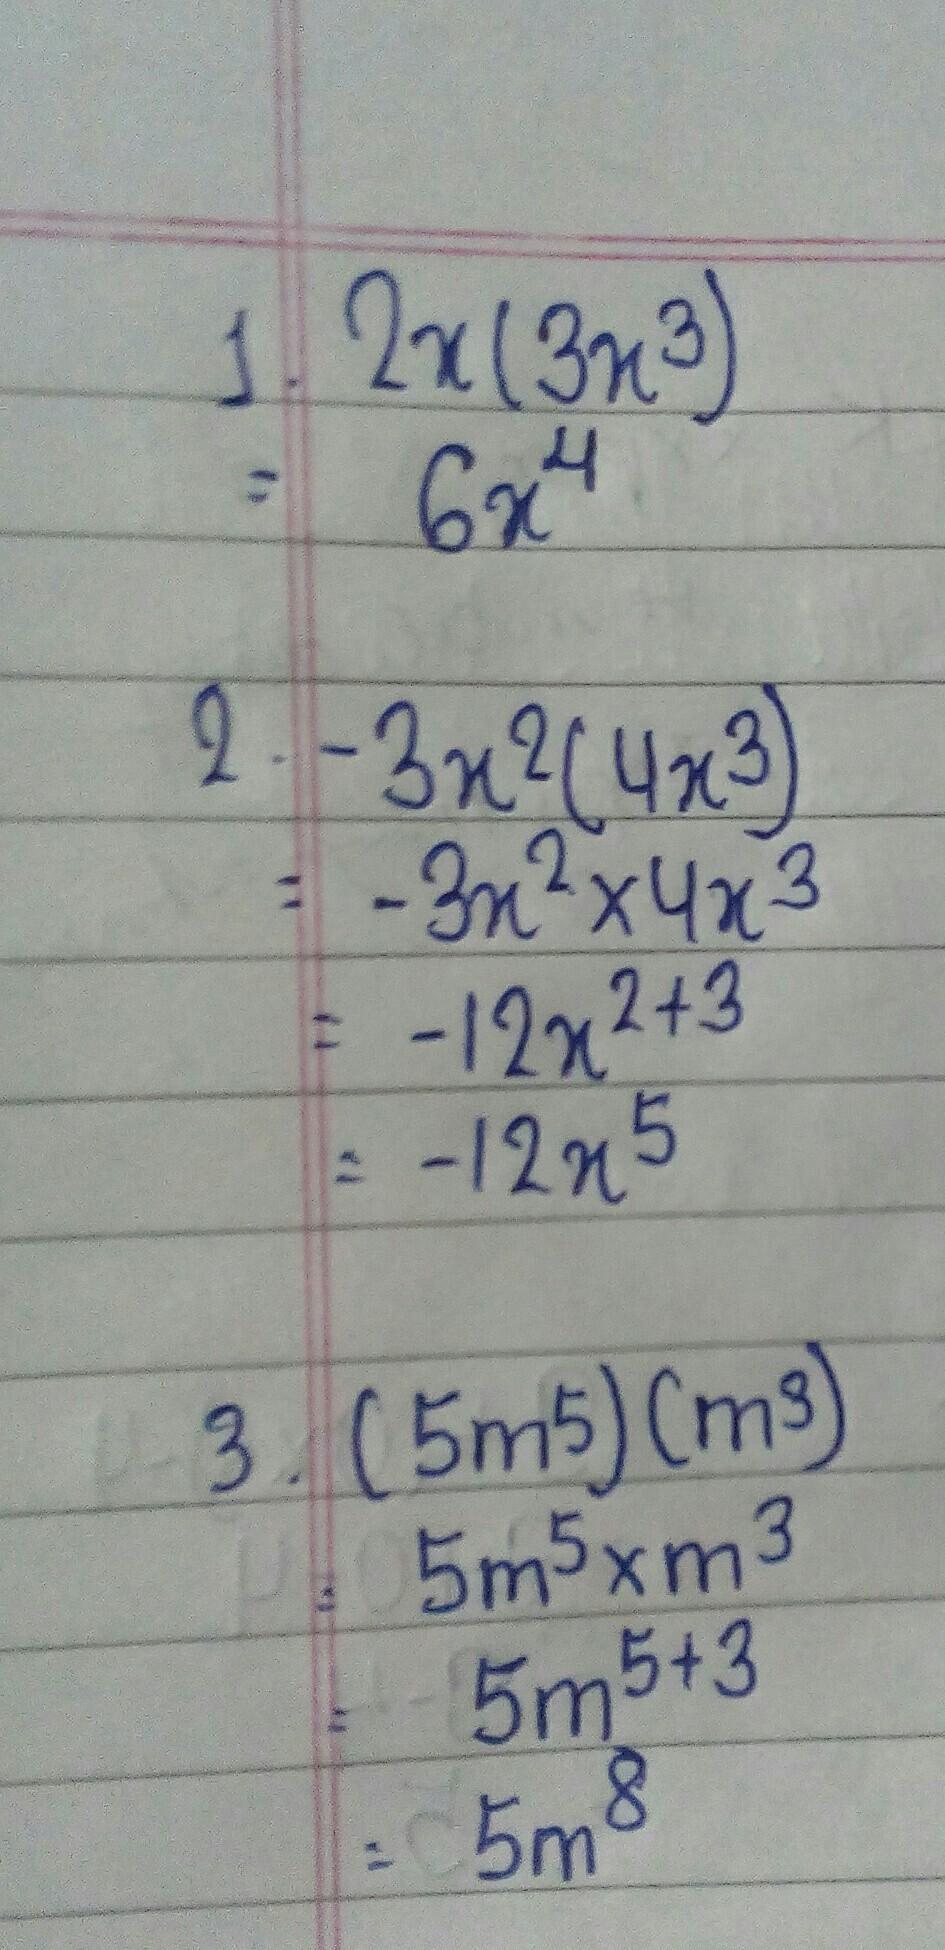 1. 2x(3x³)
= 6x⁴
2. -3x²(4x³)
= -3x²×4x³
= -12x²⁺³
= -12x⁵
3. (5m⁵)(m³)
= 5m⁵×m³
= 5m⁵⁺³
= 5m⁸